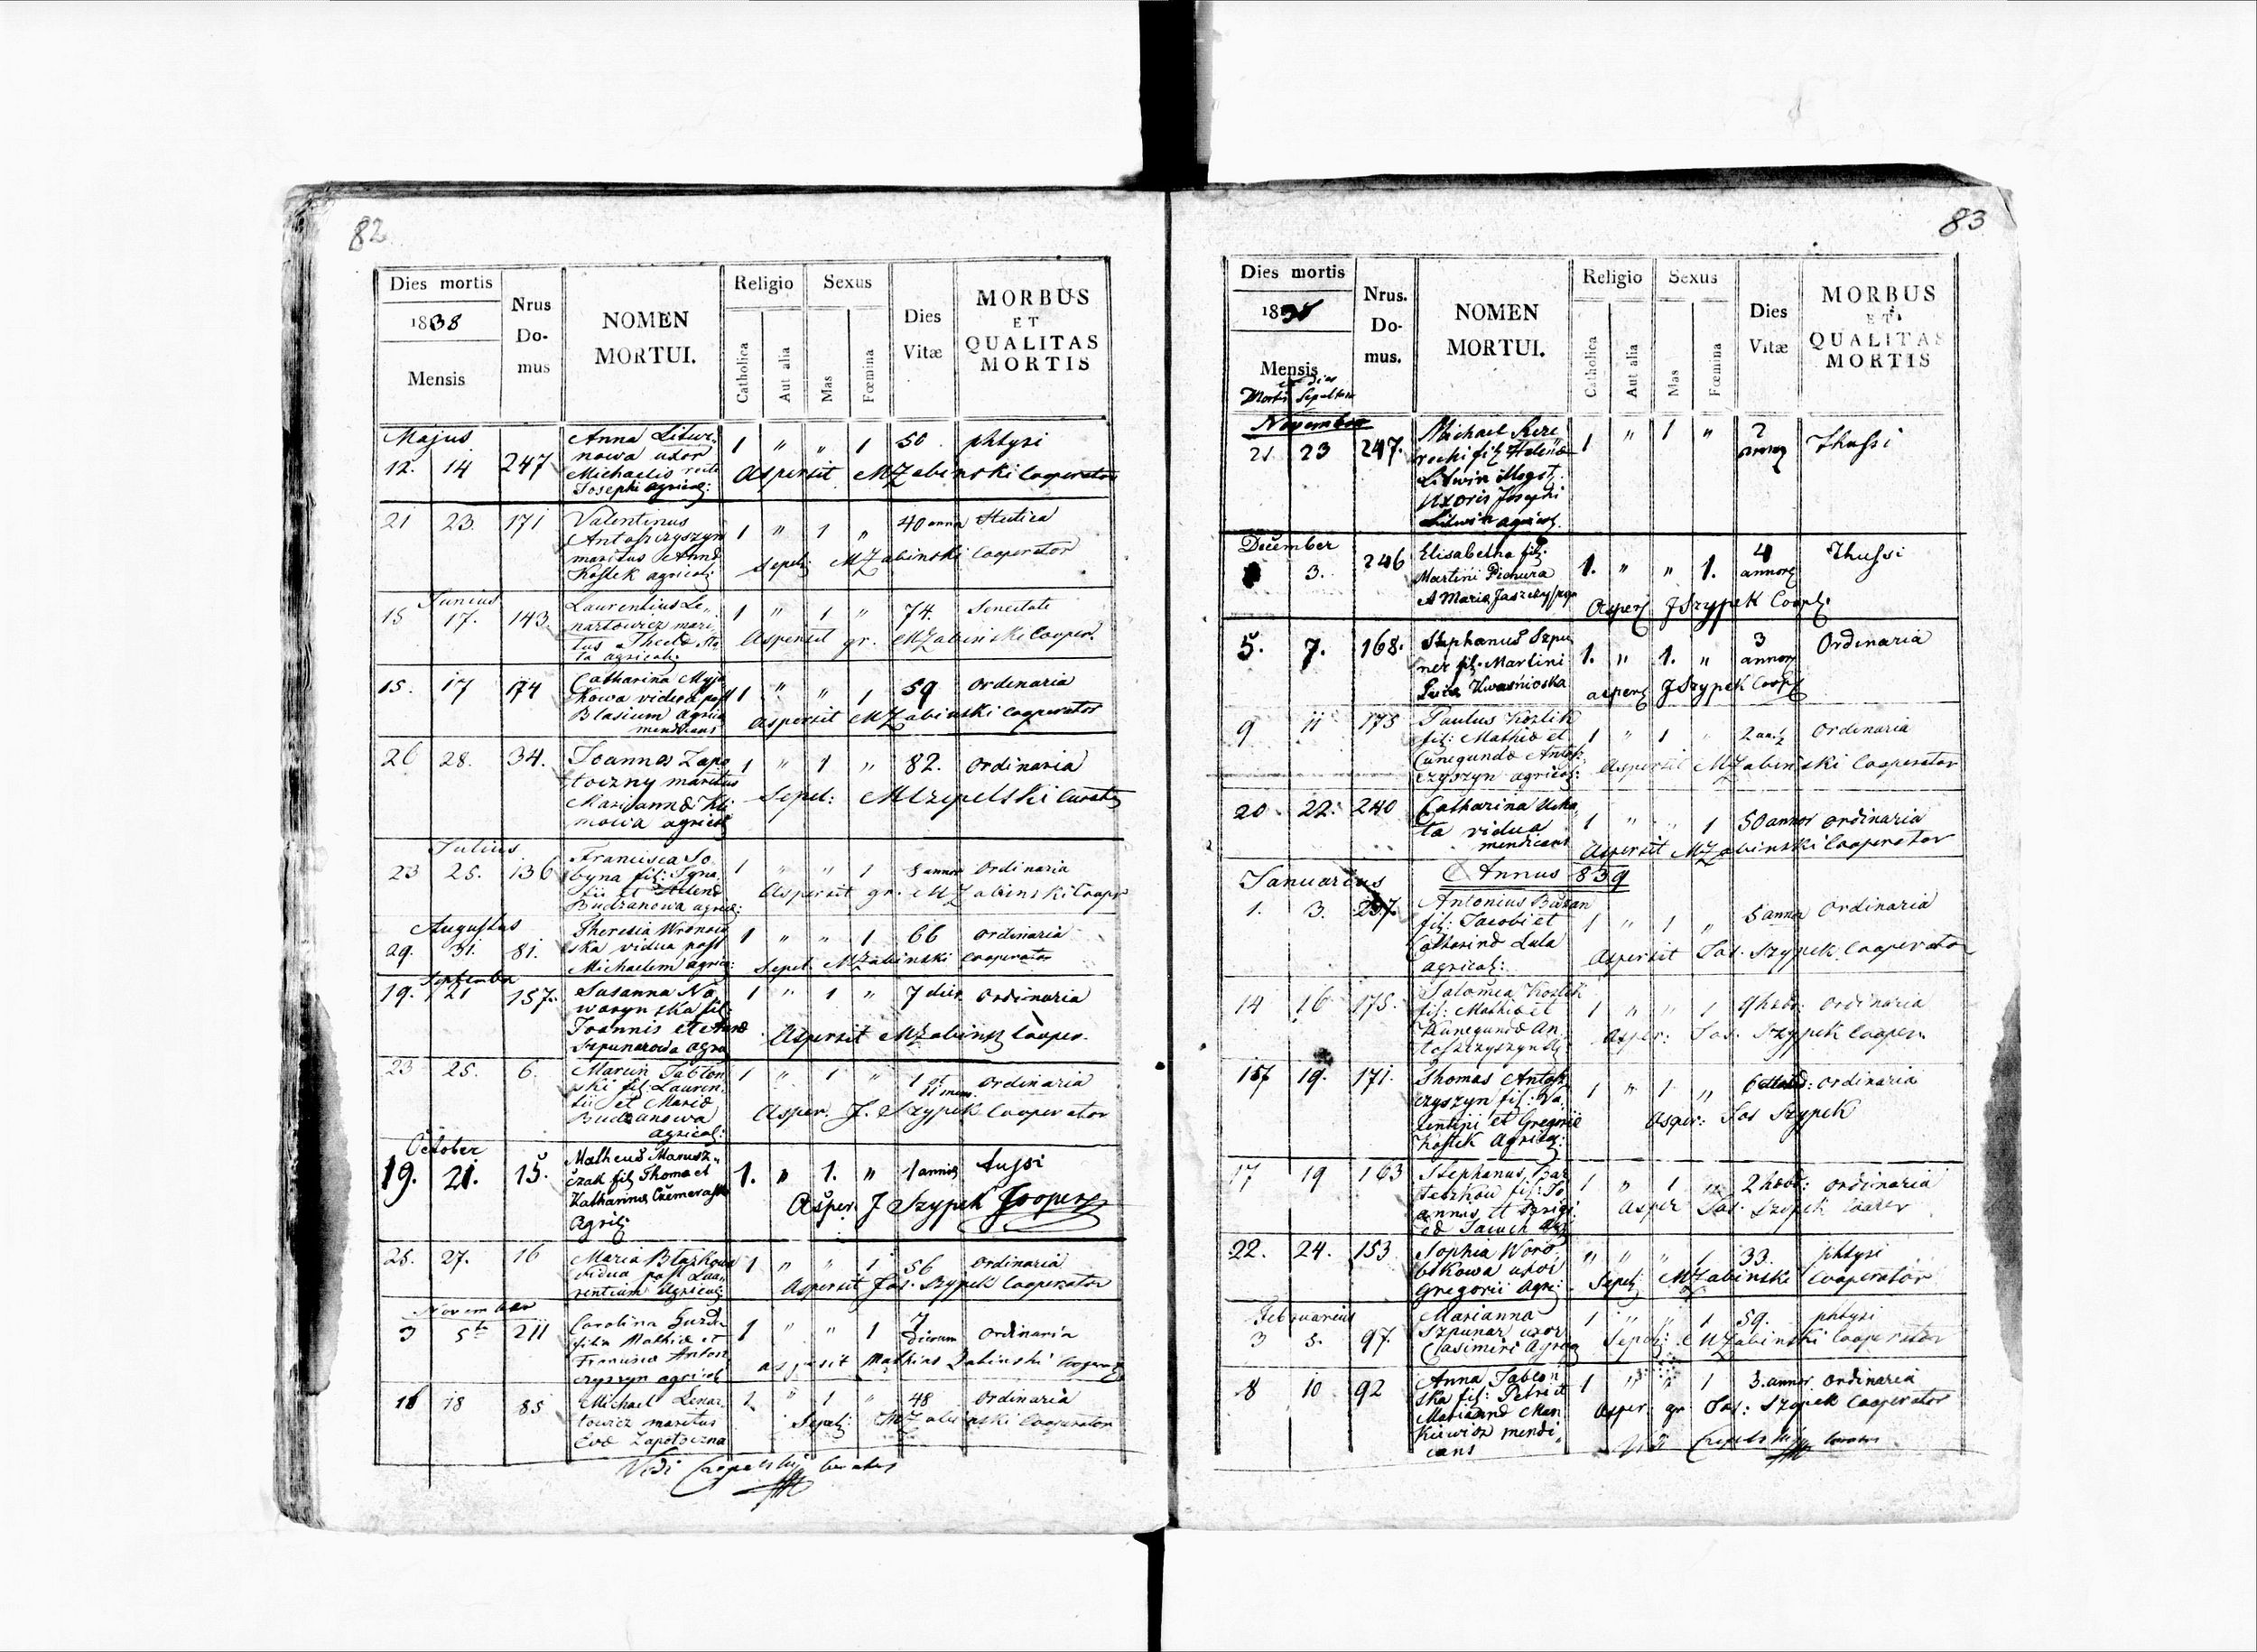 82
Dies mortis
1838
Mensis
Nrus
Do-
mus
NOMEN
MORTUI.
Religio
Catholica
Aut alia
Sexus
Mas
Fœmina
Dies
Vitæ
MORBUS
ET
QUALITAS
MORTIS
Majus
12. 14 247 Anna Litwi-
nowa uxor
Michaelis recte
Josephi agricol:
1 " " 1 50 phtysi
Aspersit MZabinski Cooperator
21 23. 171 Valentinus
Antoszczyszyn
maritus Annæ
Kostek agricol:
1 " 1 " 40 anno Hectica
Sepel: MZabinski Cooperator
Junius
15 17. 143. Laurentius Le-
nartowicz mari-
tus Theclæ
agricol:
1 " 1 " 74. Senectute
Aspersit gr. MZabinski Cooper.
15. 17 174 Catharina
vidua post
Blasium agric
mendicans
1 " " 1 59 Ordinaria
Aspersit MZabinski Cooperator
26 28. 34. Joannes Zapo
toczny maritus
Mariannæ Kli
mowa agricol
1 " 1 " 82. Ordinaria
Sepel: MCzepelski Curatus
Julius
23 25. 136 Francisca So
byna fil: Igna
tii et Helenæ
Budzanowa agricol:
1 " " 1 8 annor Ordinaria
Aspersit gr. MZabinski Coopr
Augustus
29. 31. 81. Theresia Wronow
ska vidua post
Michaelem agric:
1 " " 1 66 Ordinaria
Sepel. MZabinski Cooperator
September
19. 21 157. Susanna Na
warynska fil:
Joannis et Annæ
Szpunarowa agric
1 " 1 " 7 dier Ordinaria
Aspersit MZabinsk Cooper.
23 25. 6. Marcin Jablon
ski fil: Lauren
tii et Mariæ
Budzanowa
agricol:
1 " 1 " 1 et 11 men. Ordinaria
Asper. J. Szypek Cooperator
October
19. 21. 15. Matheus Marusz-
czak fil Thoma et
Katharina
Agric:
1. " 1. " 1 annis tussi
Asper. J Szypek Cooper
25. 27. 16 Maria Blazkowa
vidua post Lau-
rentium Agricol:
1 " " 1 56 Ordinaria
Aspersit Jos. Szypek Cooperator
November
3 5ta 211 Carolina
filia Mathiæ et
Francisca Antosz
czyszyn agricol
1 " " 1 7 dierum Ordinaria
aspersit Mathias Zabinski Cooperator
16 18 85 Michael Lenar
towicz maritus
Evæ Zapotoczna
1 " 1 " 48 Ordinaria
Sepel: MZabinski Cooperator
Vidi Czepelskij Curatus
83
Dies mortis
1838
Mensis
Mortis et dies Sepulturæ
Nrus.
Do-
mus.
NOMEN
MORTUI.
Religio
Catholica
Aut alia
Sexus
Mas
Fœmina
Dies
Vitæ
MORBUS
ET
QUALITAS
MORTIS
November
21 23 247. Michael
fil Helenæ
Litwin
Uxoris Josephi
Litwin agricol.
1 " 1 " 2 annor Thussi
December
3. 246 Elisabetha fil:
Martini Pichura
& Maria
1. " " 1. 4 annor Thussi
Aspers JSzypek Coopr.
5. 7. 168. Stephanus Szpu
ner fil: Martini
Kwasnioska
1. " 1. " 3 annor Ordinaria
aspers JSzypek Coopr
9 11 175 Paulus Kozlik
fil: Mathiæ et
Cunegundæ Antosz
czyszyn agricol:
1 " 1 " 2 an. ½ Ordinaria
Aspersit MZabinski Cooperator
20 22. 240 Catharina
vidua
mendicans
1 " " 1 50 annor Ordinaria
Aspersit MZabinski Cooperator
Annus 839
Januarius
1. 3. 237. Antonius Buzan
fil: Jacobi et
Catharinæ Lula
agricol:
1 " 1 " 5 annor Ordinaria
Aspersit Jos. Szypek Cooperator
14 16 175. Salomea Kozlik
fil: Mathiæ et
Kunegundæ An
toszczyszyn
1 " " 1 9 hebd: Ordinaria
Asper: Jos. Szypek Cooper.
157 19. 171. Thomas Antosz
czyszyn fil: Va
lentini et Gregoriæ
Kostek Agricol:
1 " 1 " 6 Ordinaria
Asper: Jos Szypek
17 19 163 Stephanus
fil: Jo
annis et Brigi
dæ
1 " 1 " 2 hebd: Ordinaria
Asper Jos. Szypek Cooper
22. 24. 153 Sophia Woro
bikowa uxor
Gregorii Agri:
" " " 1 33. phtysi
Sepel: MZabinski Cooperator
Februarius
3 5. 97. Marianna
Szpunar uxor
Casimiri Agric
1 " " 1 59. phtysi
Sepel: MZabinski Cooperator
8 10 92 Anna Jablon
ska fil: Petri et
Mariannæ Man
kiewicz mendi
cans
1 " " 1 3. annor Ordinaria
Asper gr Jos: Szypek Cooperator
Vidi Czepelskij Curatus